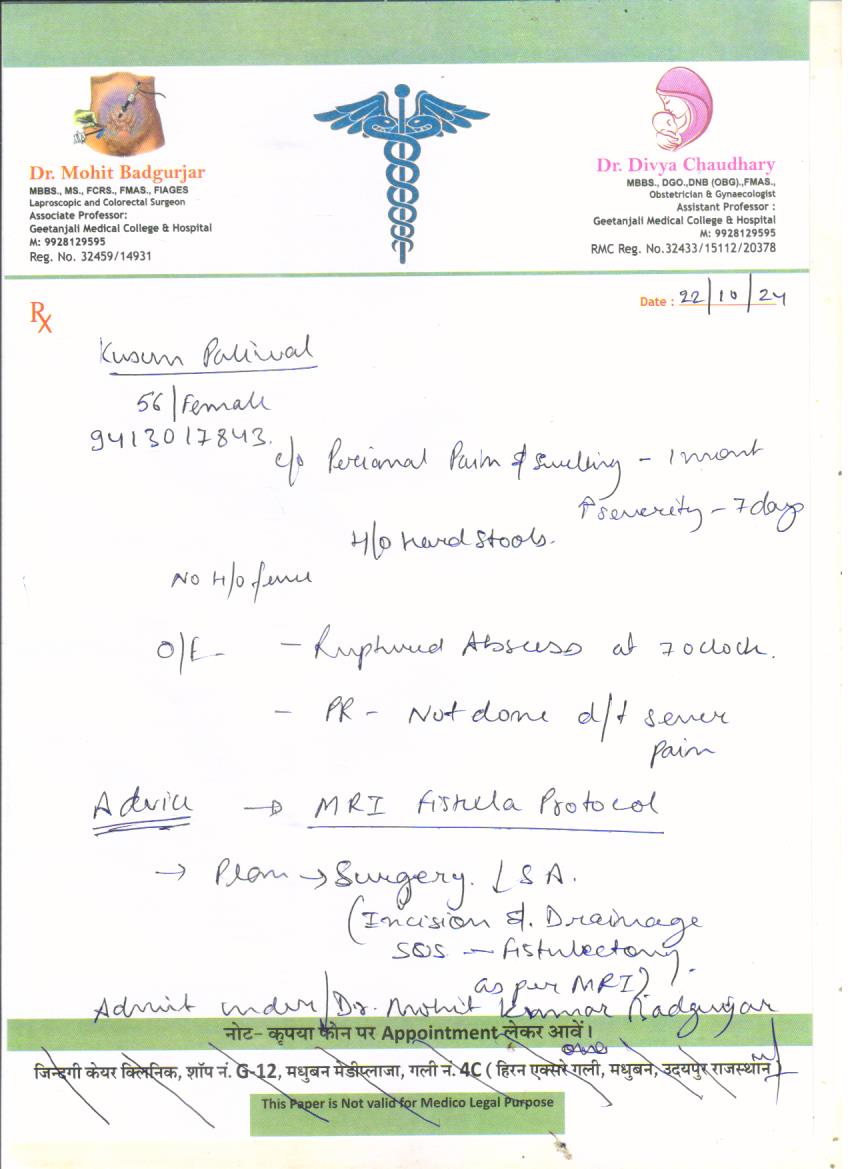 Dr. Mohit Badgurjar
MBBS., MS., FCRS., FMAS., FIAGES
Laproscopic and Colorectal Surgeon
Associate Professor:
Geetanjali Medical College & Hospital
M: 9928129595
Reg. No. 32459/14931
Dr. Divya Chaudhary
MBBS., DGO.,DNB (OBG).,FMAS.,
Obstetrician & Gynaecologist
Assistant Professor :
Geetanjali Medical College & Hospital
M: 9928129595
RMC Reg. No.32433/15112/20378
Rx
Date : 22/10/24
Kusum Paliwal
56/Female
9413017843.
c/o Perianal Pain & swelling - 1 mont
↑severity - 7 days
H/o hard stools.
No H/o fever
O/E - Ruptured Abscess at 7 oclock.
- PR - Not done d/t sever
pain
Advice → MRI Fistula Protocol
→ Plan → Surgery. ↓ SA.
(Incision &. Drainage
SOS - fistulectomy
as per MRI)
Admit under Dr. Mohit Kumar Badgurjar
नोट- कृपया फोन पर Appointment लेकर आवें।
जिन्दगी केयर क्लिनिक, शॉप नं. G-12, मधुबन मेडीप्लाजा, गली नं. 4C ( हिरन एक्सरे गली, मधुबन, उदयपुर राजस्थान )
This Paper is Not valid for Medico Legal Purpose